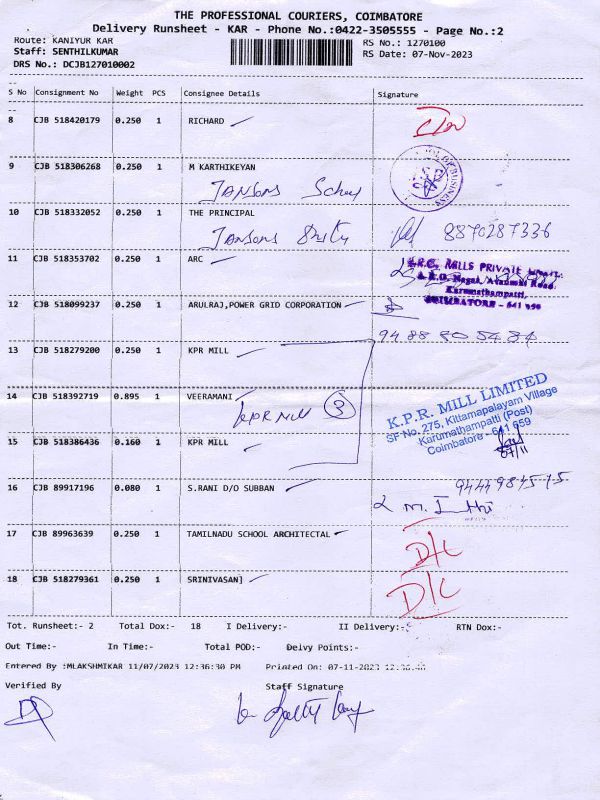 THE PROFESSIONAL COURIERS, COIMBATORE
Delivery Runsheet - KAR - Phone No.:0422-3505555 - Page No.:2
Route: KANIYUR KAR
RS No.: 1270100
Staff: SENTHILKUMAR
RS Date: 07-Nov-2023
DRS No.: DCJB127010002
S No Consignment No Weight PCS Consignee Details Signature
8 CJB 518420179 0.250 1 RICHARD
9 CJB 518306268 0.250 1 M KARTHIKEYAN
JANSONS
OF BUSINESS
10 CJB 518332052 0.250 1 THE PRINCIPAL
JANSONS 8870287336
11 CJB 518353702 0.250 1 ARC
MILLS PRIVATE
Karumathampatti,
COIMBATORE - 641 659
12 CJB 518099237 0.250 1 ARULRAJ,POWER GRID CORPORATION
13 CJB 518279200 0.250 1 KPR MILL
14 CJB 518392719 0.895 1 VEERAMANI
KPR Mill 3
K.P.R. MILL LIMITED
SF No. 275, Kittamapalayam Village
Karumathampatti (Post)
Coimbatore - 641 659
07/11
15 CJB 518386436 0.160 1 KPR MILL
16 CJB 89917196 0.080 1 S.RANI D/O SUBBAN
17 CJB 89963639 0.250 1 TAMILNADU SCHOOL ARCHITECTAL
D/L
18 CJB 518279361 0.250 1 SRINIVASAN]
D/L
Tot. Runsheet:- 2 Total Dox:- 18 I Delivery:- II Delivery:- RTN Dox:-
Out Time:- In Time:- Total POD:- Deivy Points:-
Entered By :MLAKSHMIKAR 11/07/2023 12:36:30 PM Printed On: 07-11-2023
Verified By Staff Signature